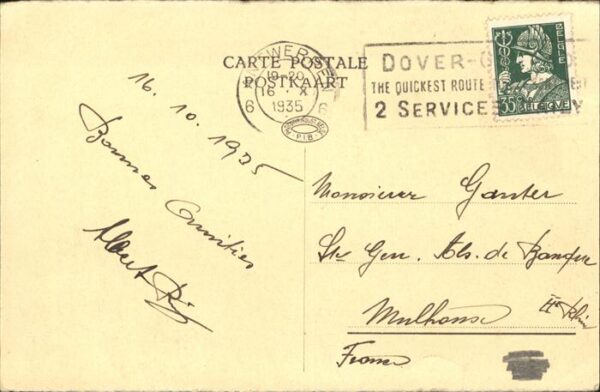 CARTE POSTALE
POSTKAART
ANTWERPEN
19-20
16 X
1935
6 6
DOVER-
THE QUICKEST ROUTE
2 SERVICE
BELGIE
35c
BELGIQUE
P.I.B.
16.10.1935
Bonnes Amitiés
Albert
Monsieur Ganter
Sté Gén. Als. de Banque
Mulhouse
Ht Rhin
France